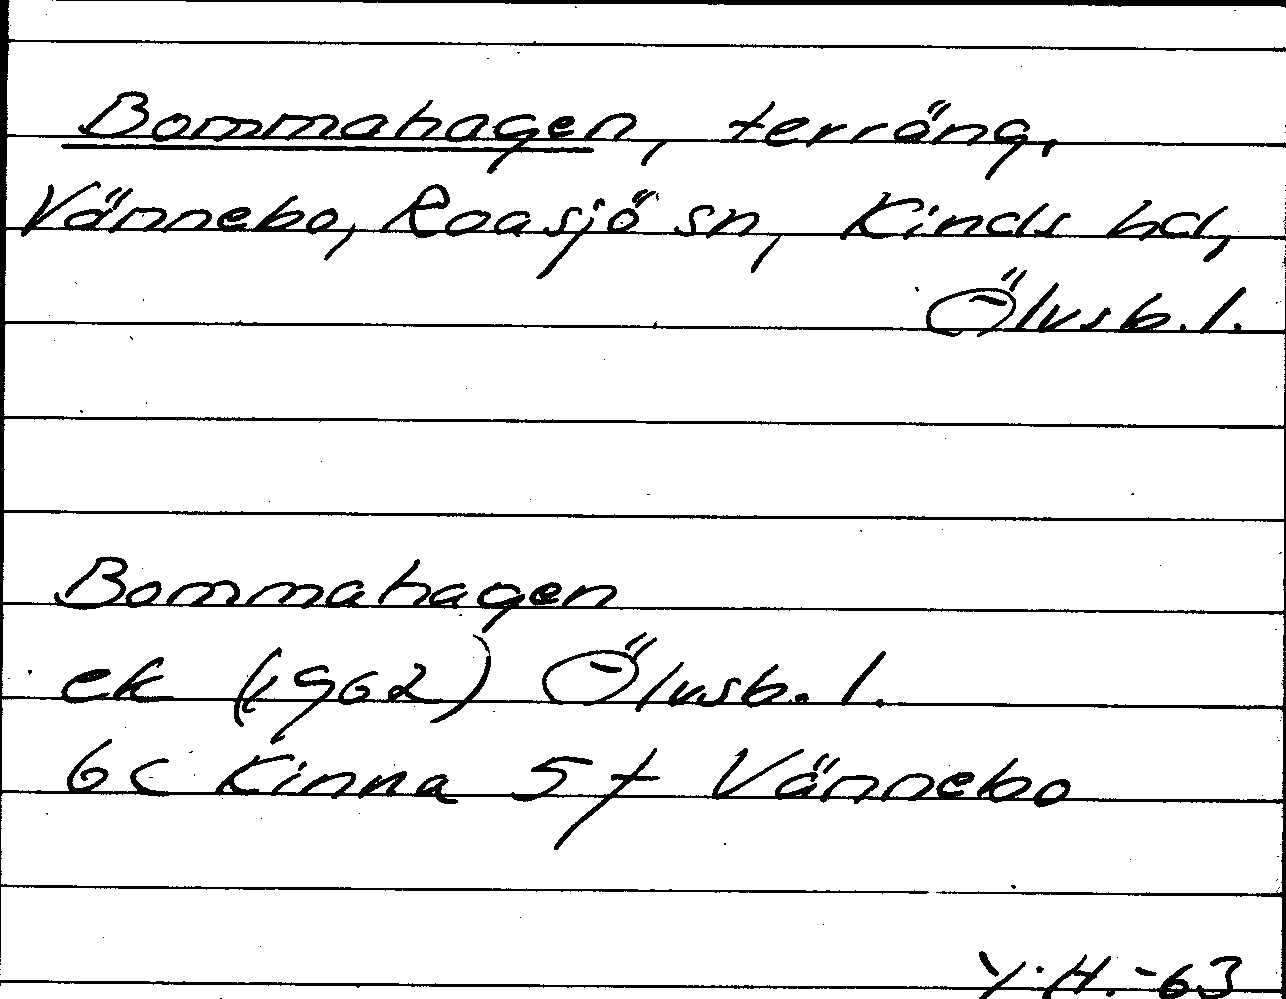 Bommahagen, terräng,
Vännebo, Roasjö sn, Kinds hd,
Älvsb. l.
Bommahagen
ek (1962) Älvsb. l.
6c Kinna 5f Vännebo
Y.H. -63